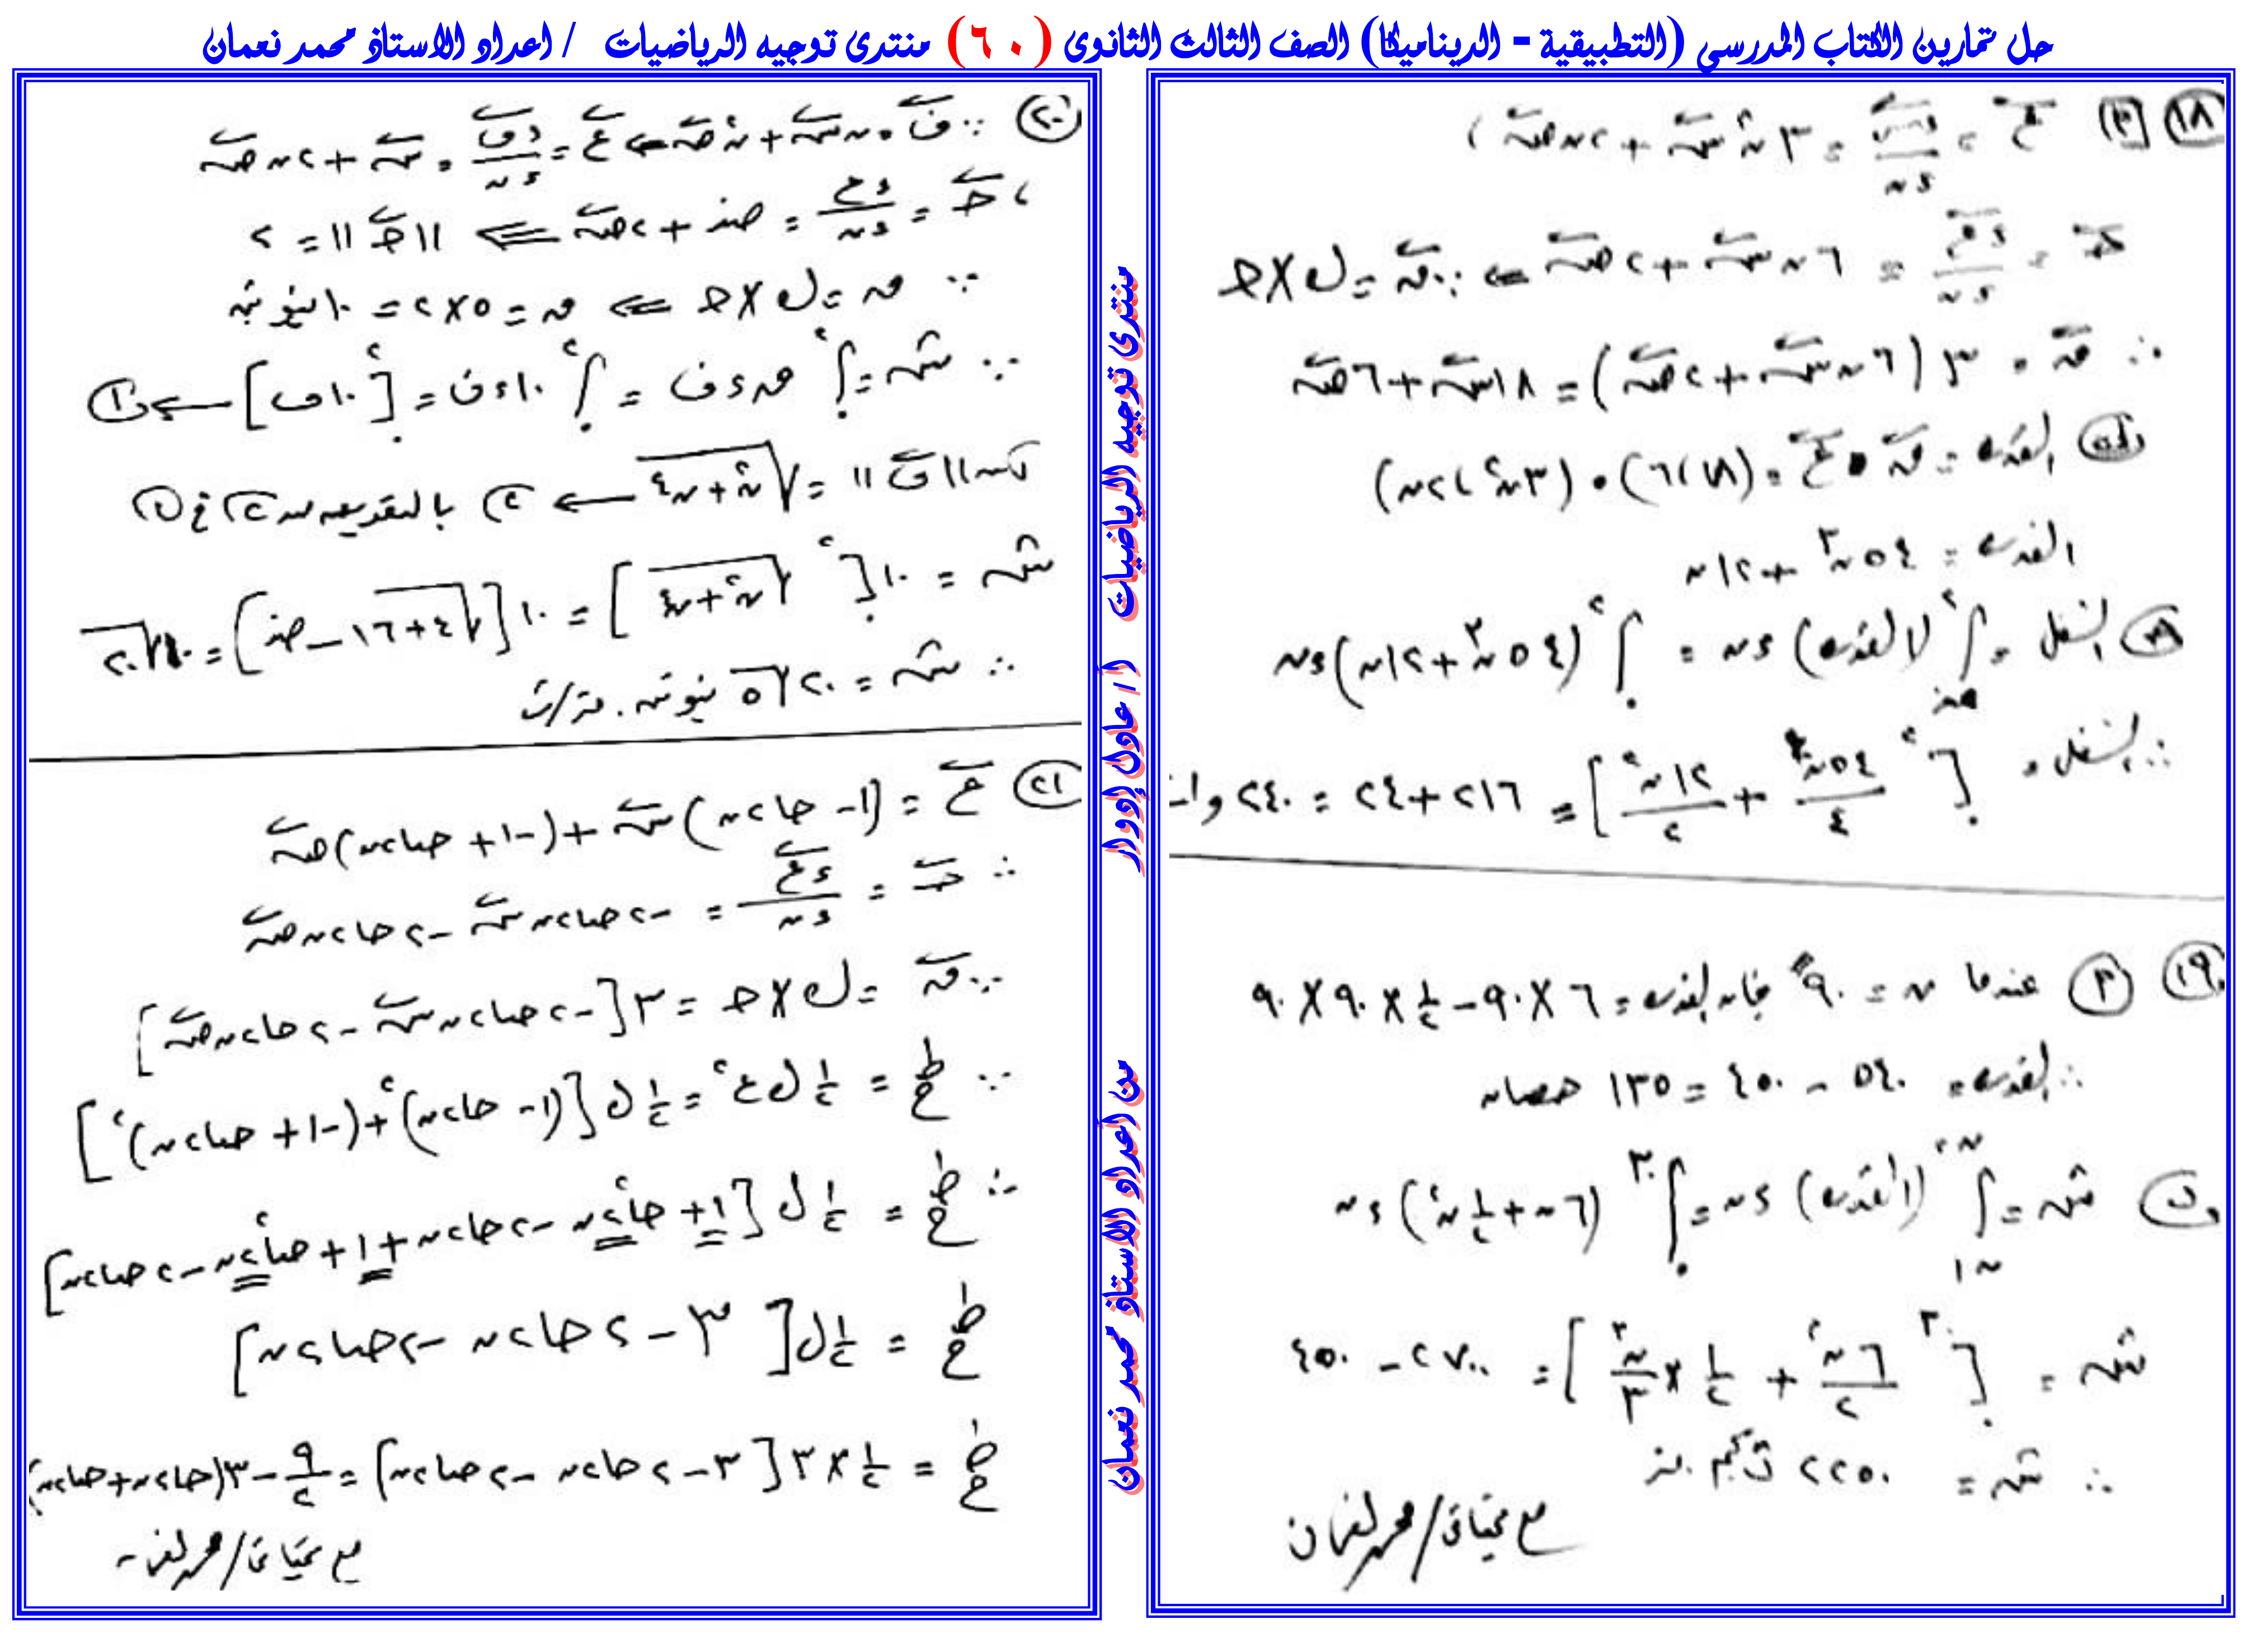 حل تمارين الكتاب المدرسي (التطبيقية - الديناميكا) الصف الثالث الثانوى (٦٠) منتدى توجيه الرياضيات / اعداد الاستاذ محمد نعمان
١٨ [٢] ع = ءف/ءن = ٣ن٢ س + ٢ن ص ،
ح = ءع/ءن = ٦ن س + ٢ ص ⇐ ∵ ق = ك × ح
∴ ق = ٣(٦ن س + ٢ ص) = ١٨ن س + ٦ ص
القدرة = ق • ع = (١٨ ، ٦) • (٣ن٢ ، ٢ن)
القدرة = ٥٤ن٣ + ١٢ن
الشغل = ∫ (القدرة) ءن = ∫ (٥٤ن٣ + ١٢ن) ءن
∴ الشغل = [٥٤ن٤/٤ + ١٢ن٢/٢] = ٢١٦ + ٢٤ = ٢٤٠
١٩ عندما ن = ٩٠ فإن القدرة = ٦ × ٩٠ - ١/٢ × ٩٠ × ٩٠
∴ القدرة = ٥٤٠ - ٤٥٠ = ١٣٥ حصان
ب شـ = ∫ (القدرة) ءن = ∫ (٦ن + ١/٢ ن٢) ءن
شـ = [٦ن٢/٢ + ١/٢ × ن٣/٣] = ٢٧٠٠ - ٤٥٠
∴ شـ = ٢٢٥٠ ث كجم . متر
مع تحياتى / محمد نعمان
٢٠ ∵ ف = ن٢ س + ن٢ ص ⇐ ع = ءف/ءن = س + ٢ن ص
، ح = ءع/ءن = صفر + ٢ ص ⇐ ||ح|| = ٢
∵ ق = ك × ح ⇐ ق = ٥ × ٢ = ١٠ نيوتن
∵ شـ = ∫ ق ءف = ∫ ١٠ ءف = [١٠ف] ← ١
||ف|| = √(ن٢ + ن٤) ← ٢ بالتعويض من ٢ فى ١
شـ = ١٠[√(ن٢ + ن٤)] = ١٠[√(٤+١٦) - صفر] = ١٠√٢٠
∴ شـ = ٢٠√٥ نيوتن . متر
٢١ ع = (١ - حا٢ن) س + (-١ + حتا٢ن) ص
∴ ح = ءع/ءن = -٢حتا٢ن س - ٢حا٢ن ص
∵ ق = ك × ح = ٣[-٢حتا٢ن س - ٢حا٢ن ص]
∵ ط = ١/٢ ك ع٢ = ١/٢ ك [(١ - حا٢ن)٢ + (-١ + حتا٢ن)٢]
∴ ط = ١/٢ ك [١ + حا٢٢ن - ٢حا٢ن + ١ + حتا٢٢ن - ٢حتا٢ن]
ط = ١/٢ ك [٣ - ٢حا٢ن - ٢حتا٢ن]
ط = ١/٢ × ٣ [٣ - ٢حا٢ن - ٢حتا٢ن] = ٩/٢ - ٣(حا٢ن + حتا٢ن)
مع تحياتى / محمد نعمان
منتدى توجيه الرياضيات
أ / عادل إدوار
من اعداد الاستاذ محمد نعمان